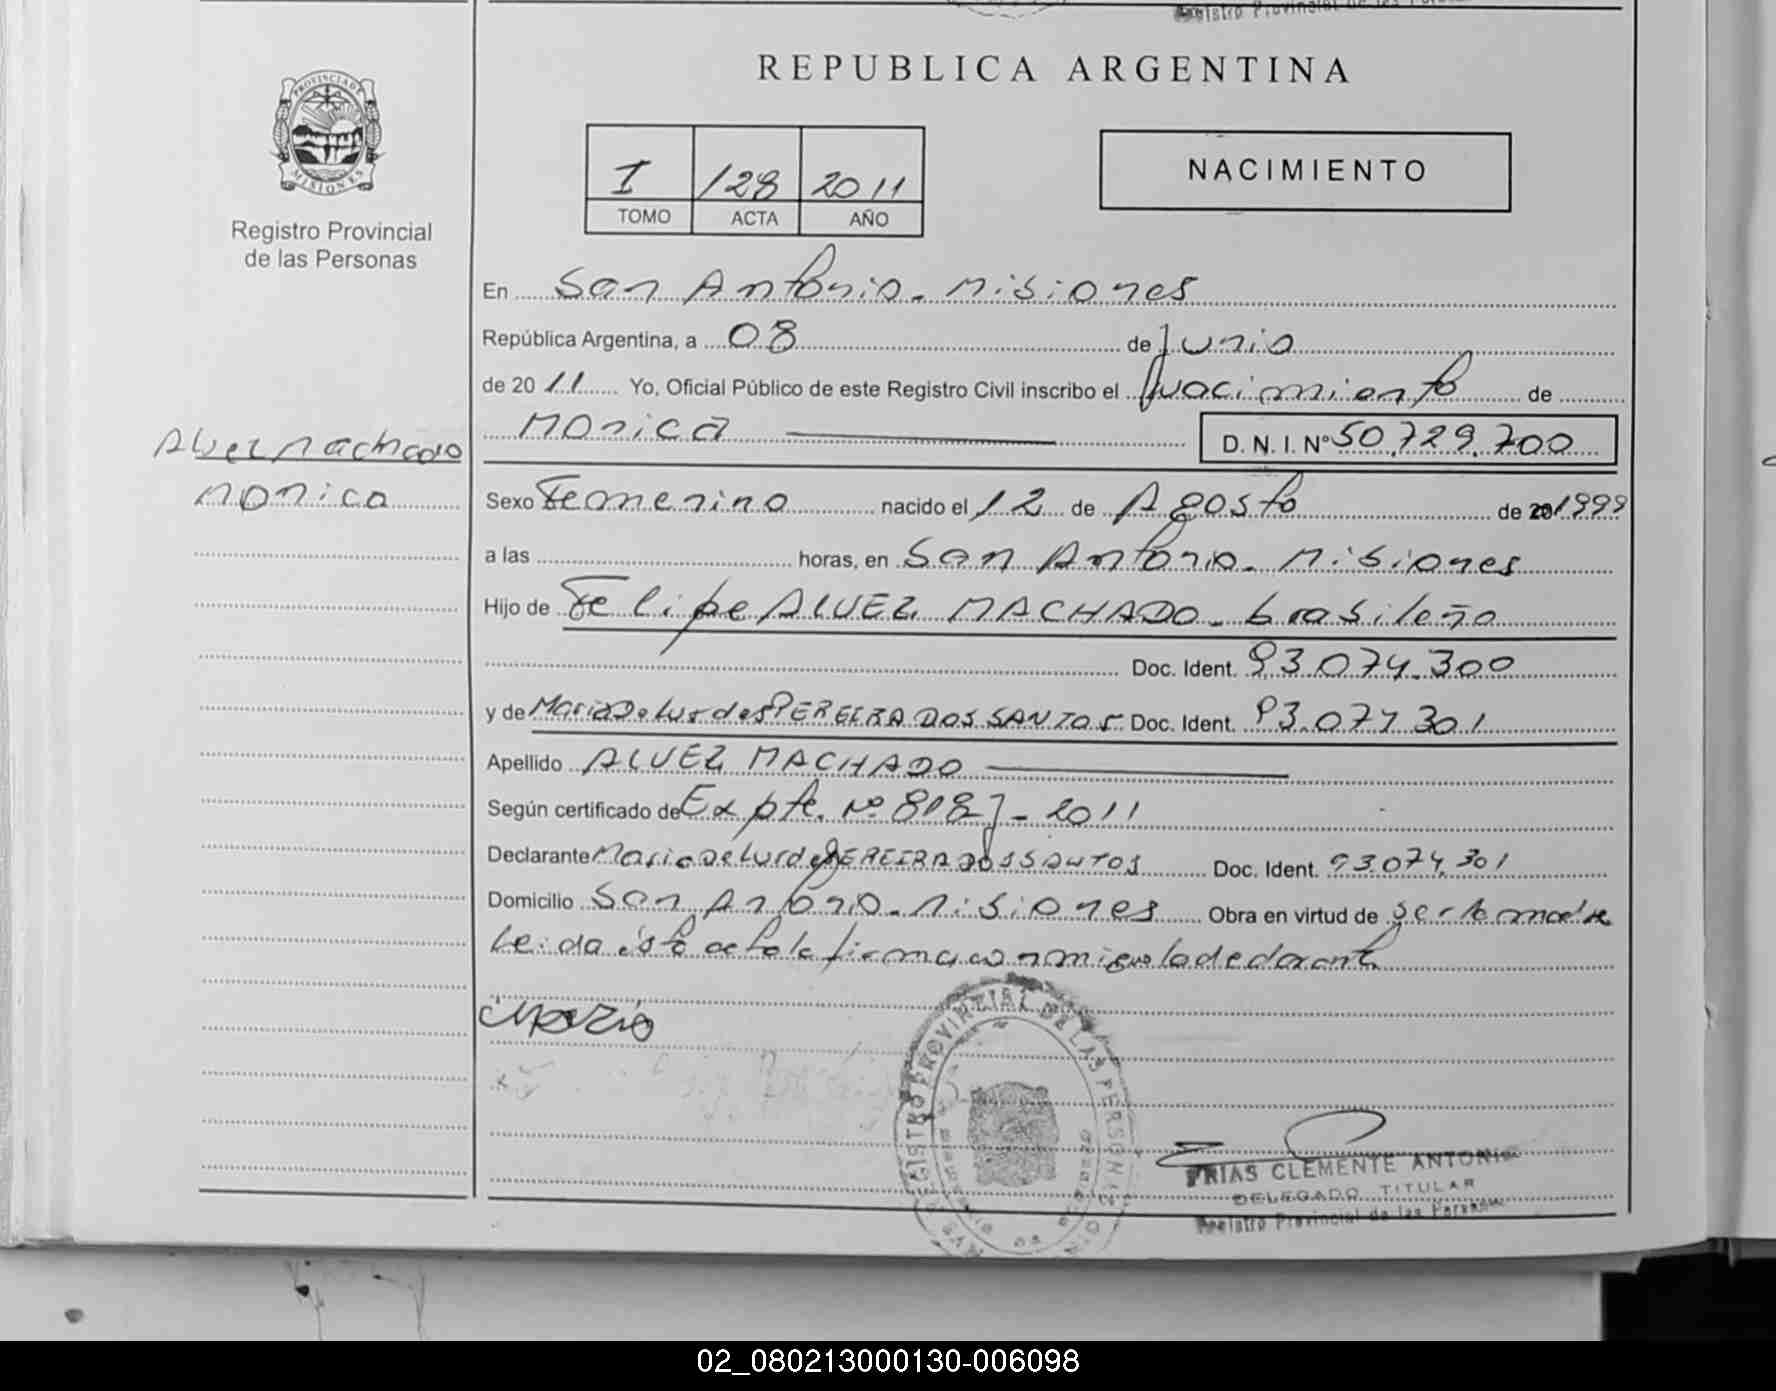 Registro Provincial de las Personas
REPUBLICA ARGENTINA
PROVINCIA DE
MISIONES
Registro Provincial
de las Personas
I 128 2011
TOMO ACTA AÑO
NACIMIENTO
En San Antonio - Misiones
República Argentina, a 08 de Junio
de 2011 Yo, Oficial Público de este Registro Civil inscribo el nacimiento de
Alvez Machado
Monica
Monica
D. N. I. Nº 50.729.700
Sexo Femenino nacido el 12 de Agosto de 20 1999
a las horas, en San Antonio - Misiones
Hijo de Felipe ALVEZ MACHADO - brasileño
Doc. Ident. 93.074.300
y de Maria De Lurdes PEREIRA DOS SANTOS Doc. Ident. 93.074.301
Apellido ALVEZ MACHADO
Según certificado de Expte. Nº 818 J - 2011
Declarante Maria De Lurdes PEREIRA DOS SANTOS Doc. Ident. 93.074.301
Domicilio San Antonio - Misiones Obra en virtud de ser la madre
Leida ésta acta la firma conmigo la declarante
Maria
REGISTRO PROVINCIAL DE LAS PERSONAS
FRIAS CLEMENTE ANTONIO
DELEGADO TITULAR
Registro Provincial de las Personas
02_080213000130-006098